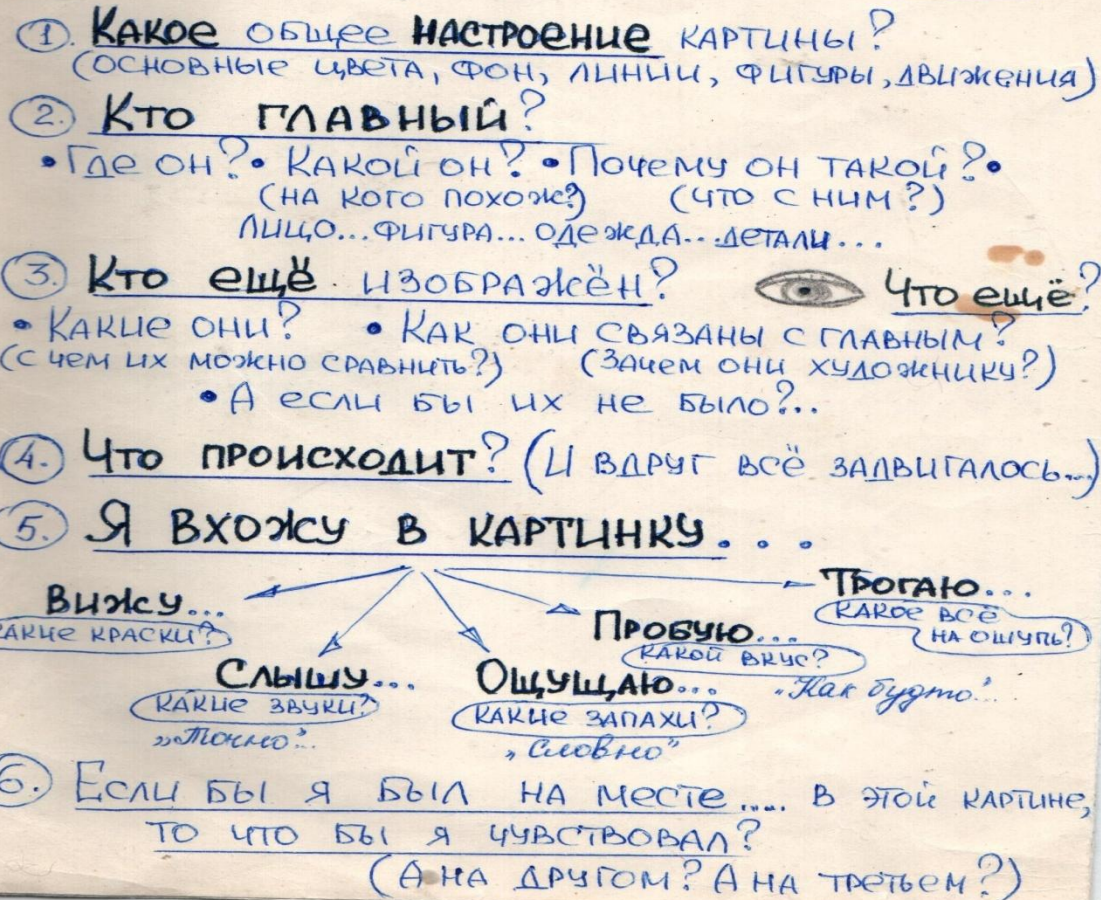 1. Какое общее настроение картины?
(основные цвета, фон, линии, фигуры, движения)
2. Кто главный?
• Где он? • Какой он? • Почему он такой? •
(на кого похож?) (что с ним?)
лицо... фигура... одежда... детали...
3. Кто ещё изображён? Что ещё?
• Какие они? • Как они связаны с главным?
(с чем их можно сравнить?) (Зачем они художнику?)
• А если бы их не было?..
4. Что происходит? (И вдруг всё задвигалось...)
5. Я вхожу в картинку...
Трогаю...
Вижу... какое всё
какие краски? Пробую... на ошупь?
какой вкус?
Слышу... Ощущаю... „Как будто"...
какие звуки? какие запахи?
„Точно"... „Словно"
6. Если бы я был на месте..... в этой картине,
то что бы я чувствовал?
(А на другом? А на третьем?)